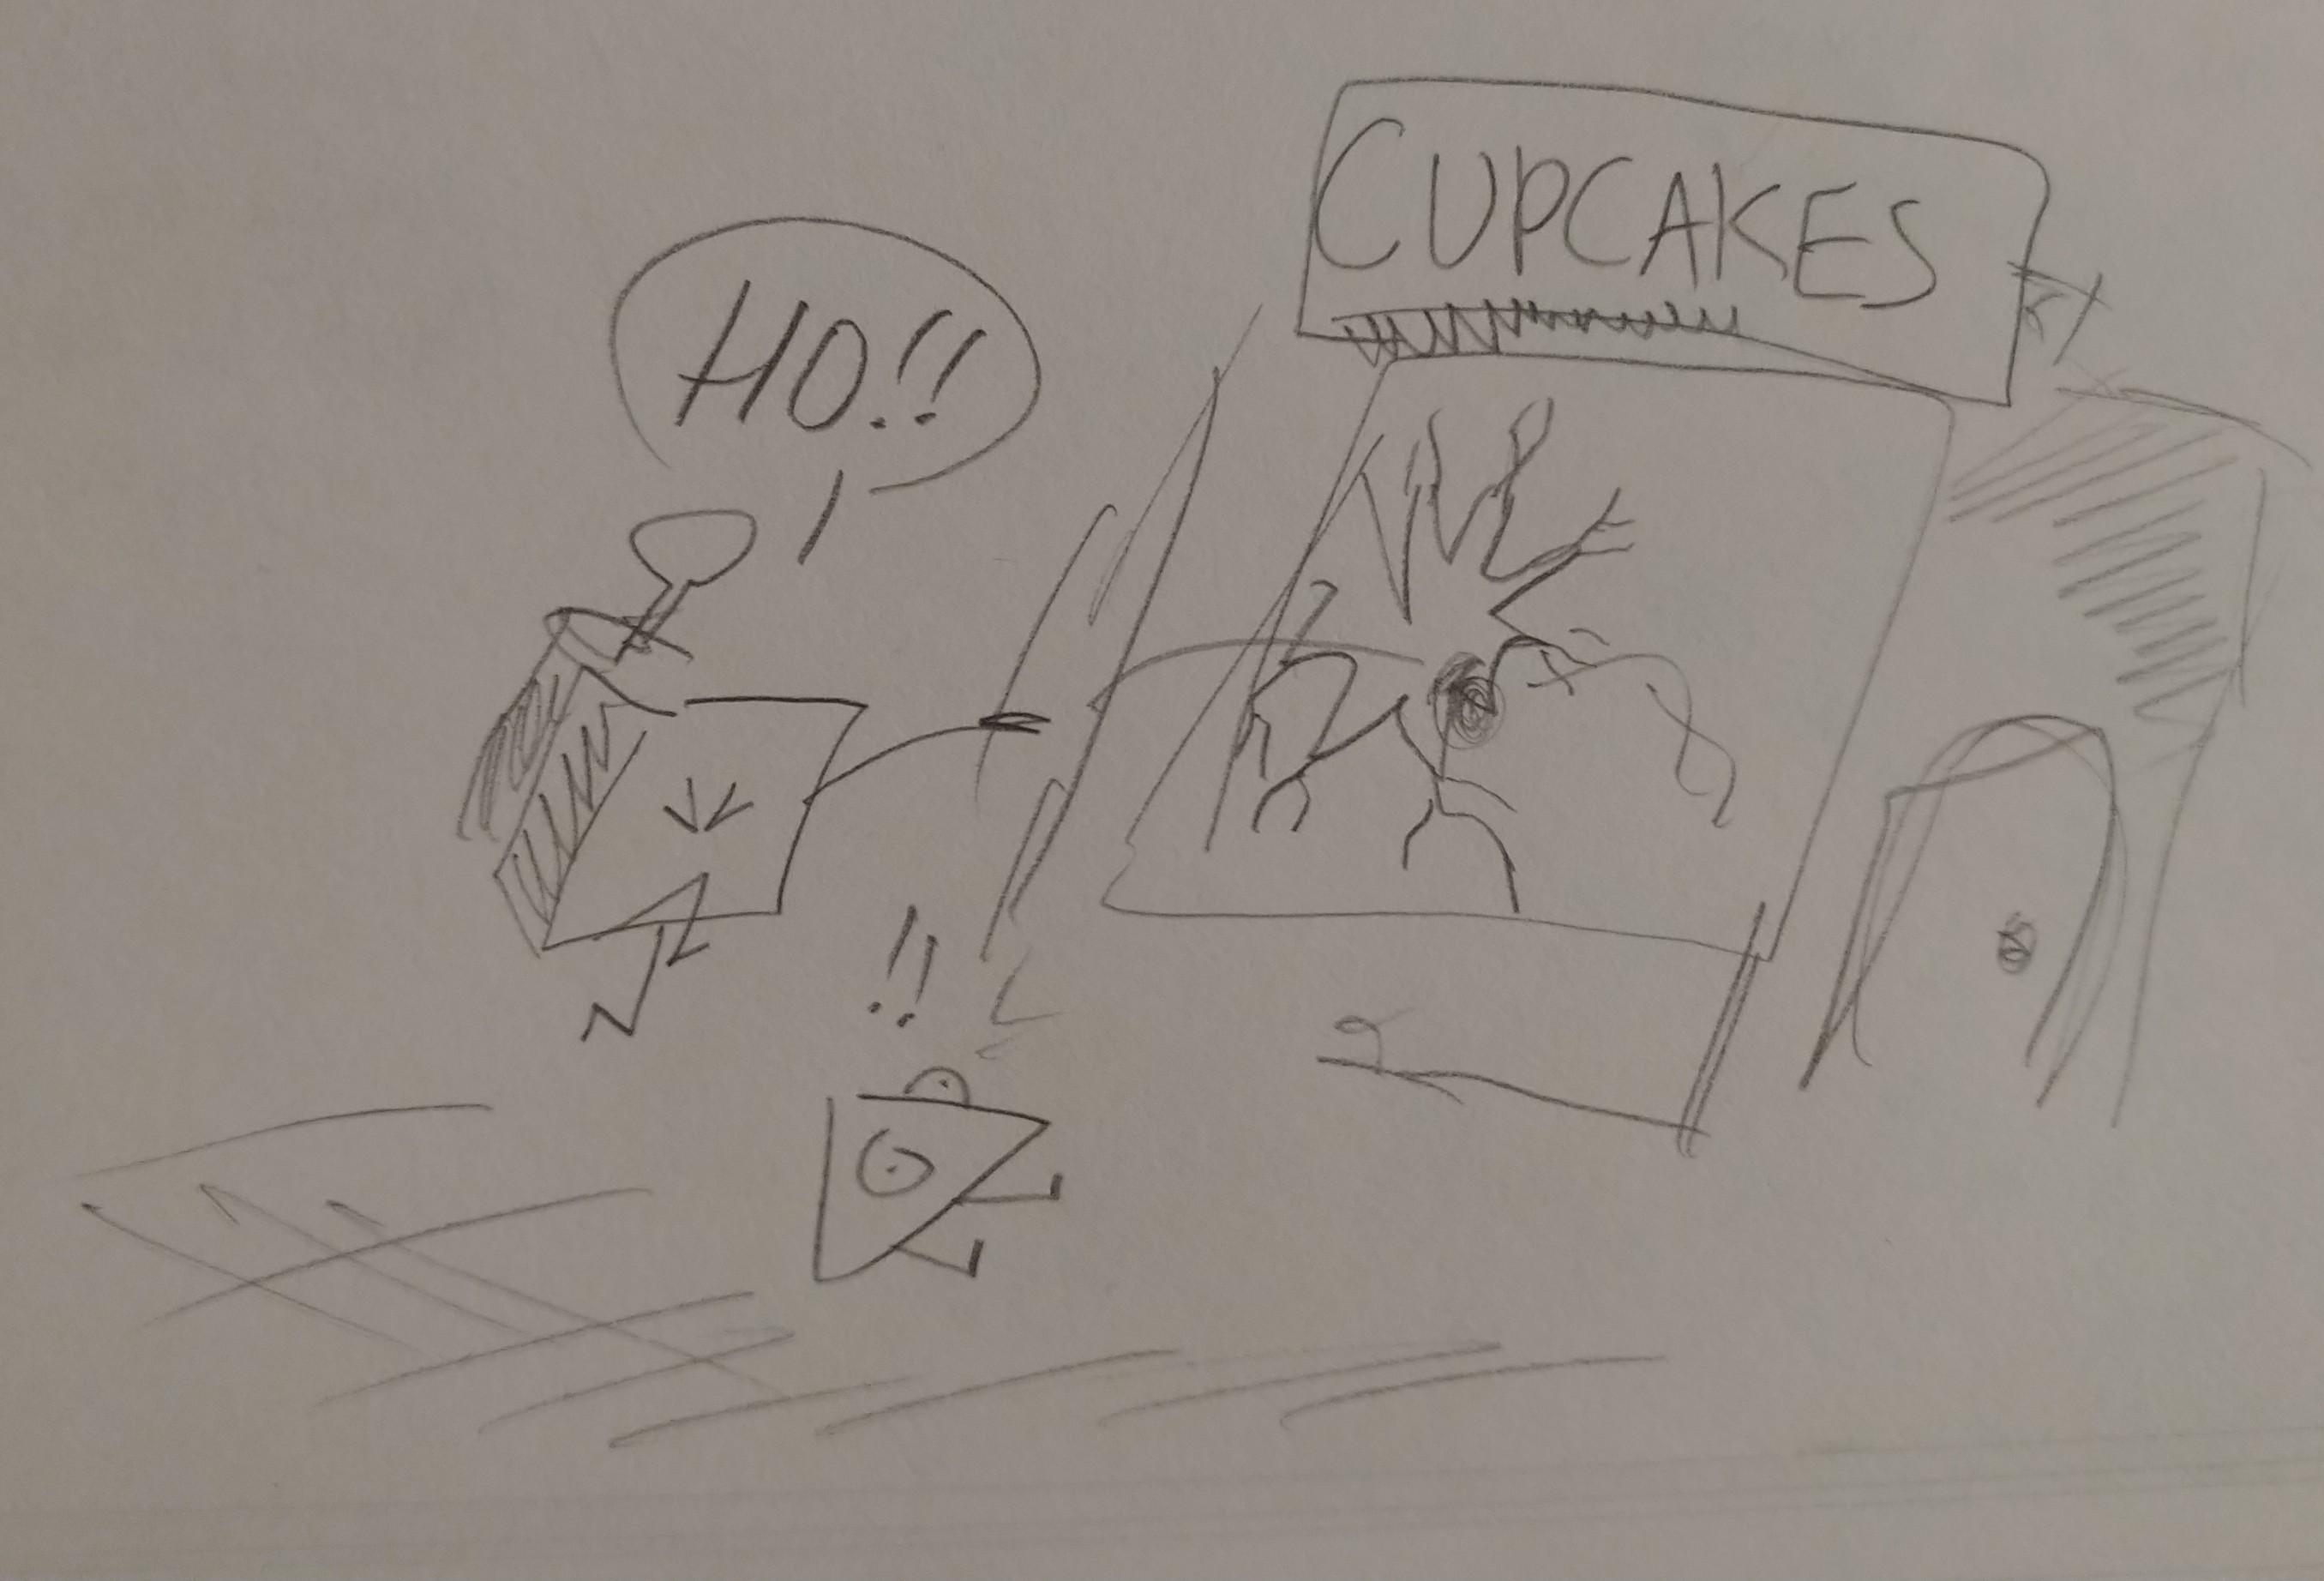 CUPCAKES
HO!!
!!